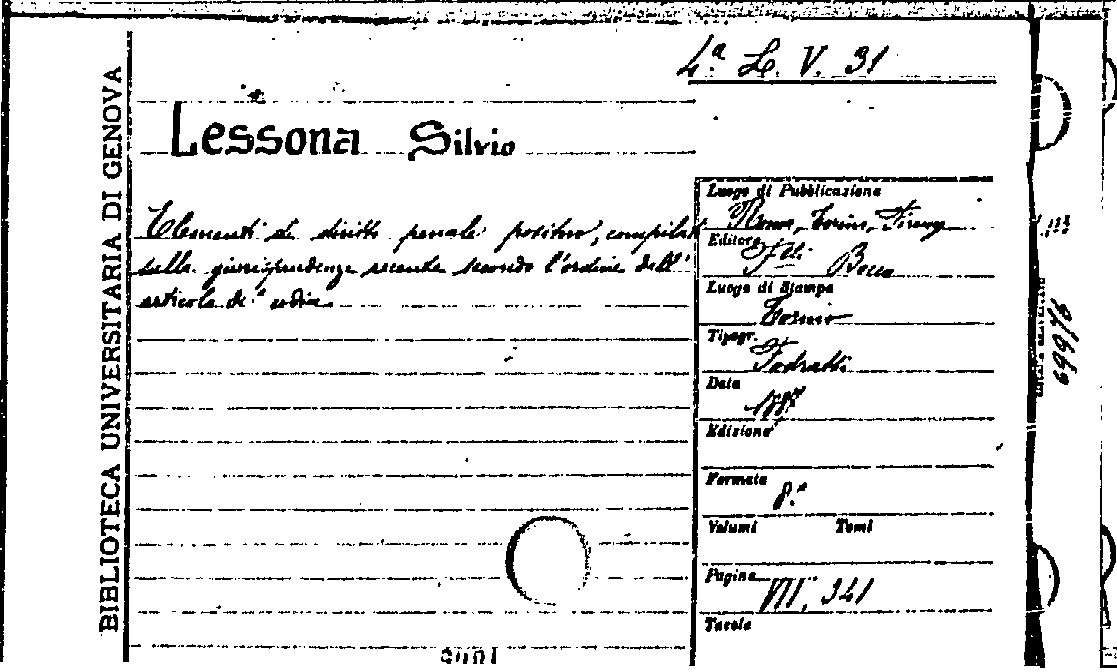 4.ª L. V. 31
BIBLIOTECA UNIVERSITARIA DI GENOVA
Lessona Silvio
Elementi di diritto penale positivo, compilati
sulla giurisprudenza recente secondo l'ordine dell'
articolo di codice
Luogo di Pubblicazione
Roma, Torino, Firenze
Editore
F.lli Bocca
Luogo di Stampa
Torino
Tipogr.
Fodratti
Data
Edizione
Formato
8.º
Volumi Tomi
Pagine
VII, 341
Tavole
69976